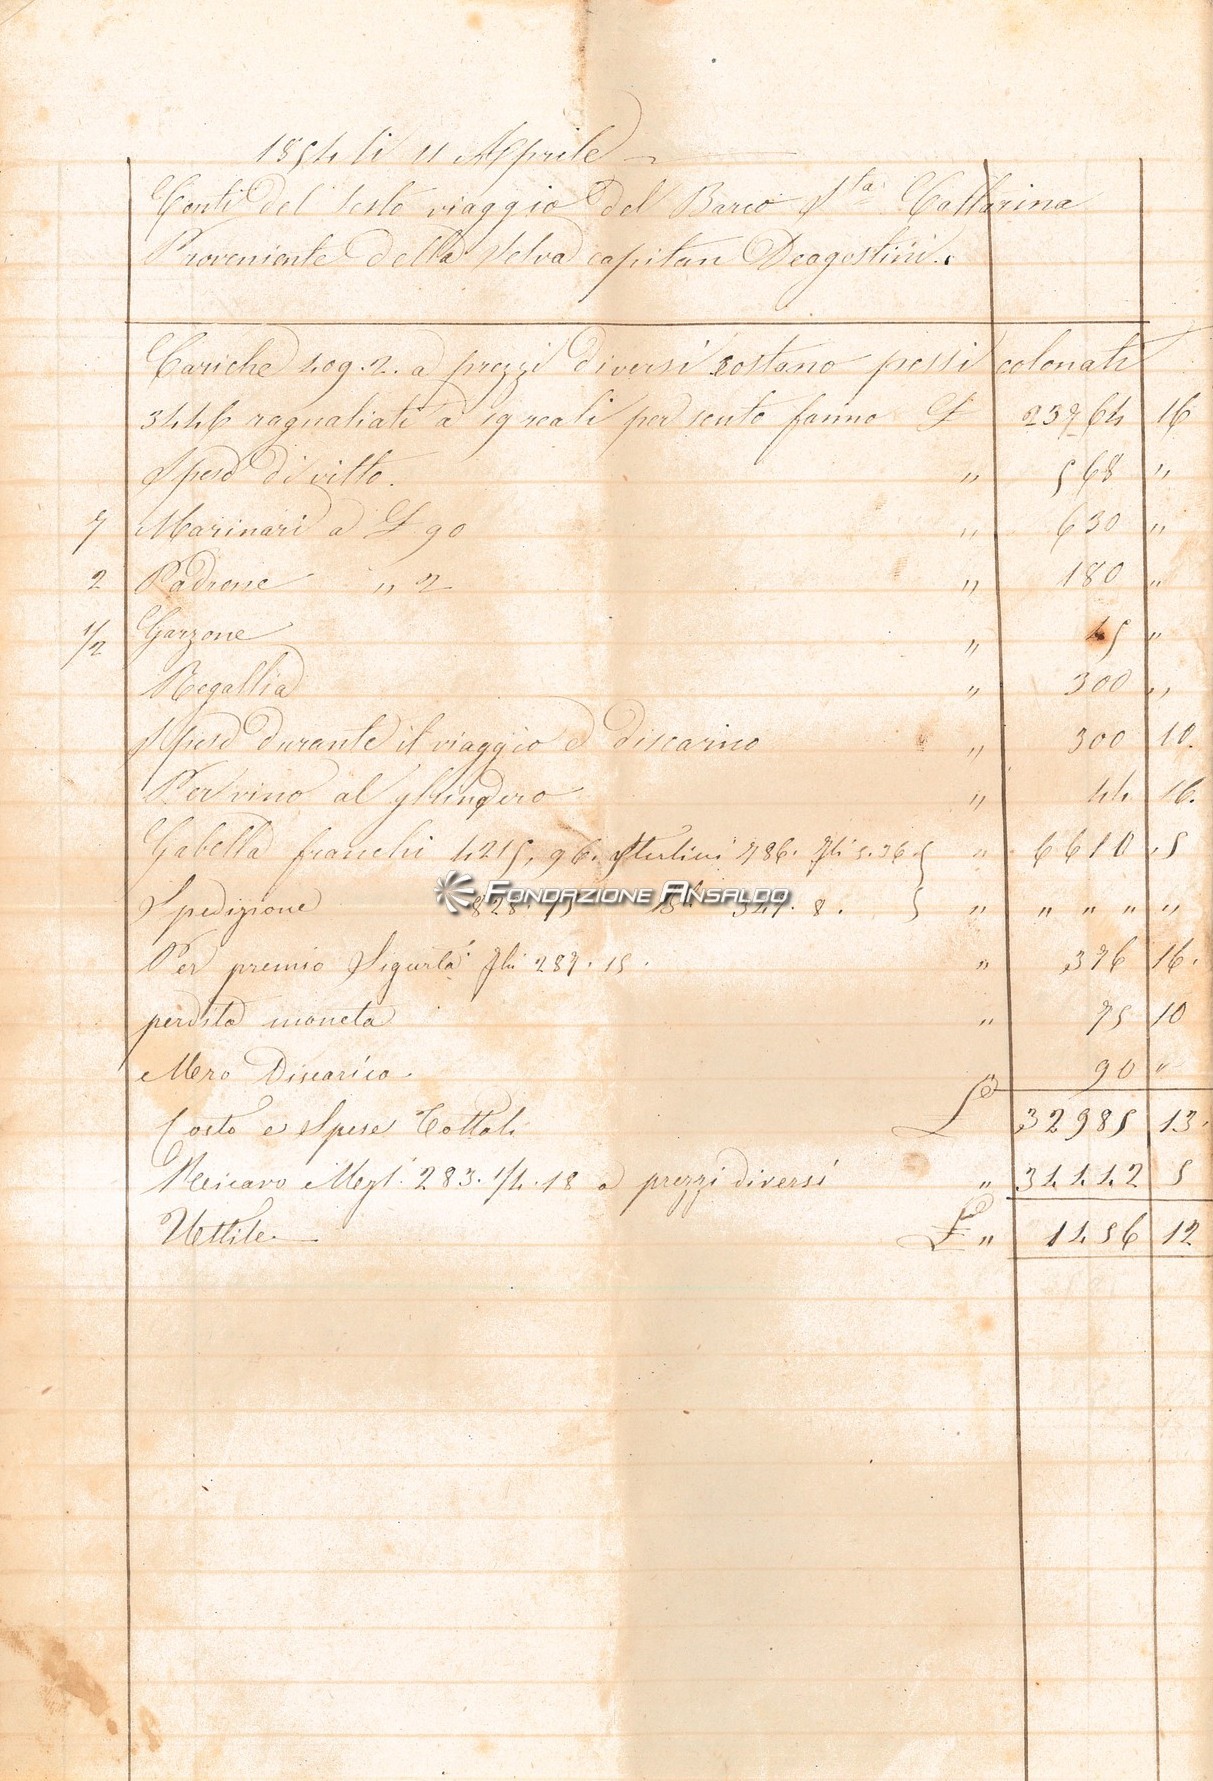 1854 li 11 Aprile
Conti del sesto viaggio del Barco Sta. Cattarina
Proveniente della Selva capitan Deagostini.
Cariche 409.2. a prezzi diversi costano pessi colonati
3446 ragualiati a 19 reali per sento fanno £ 23764 16
Spese di vitto. " 568 "
7 Marinari a £ 90 " 630 "
2 Padrone " 2 " 180 "
1/2 Garzone " 45 "
Regallia " 300 "
Spese durante il viaggio e discarico " 300 10.
Per vino al " 44 16.
Gabella franchi 4215, 96. Sterlini 786. 5.36 } " 6610 .5
Spedizione 828. 75 347. 8. } " " " " "
Per premio Sigurtà 287. 15. " 376 16.
perdita moneta " 75 10
Mero Discarico. " 90 "
Costo e Spese Tottali £ 32985 13.
Ricavo Mezl. 283. 1/4. 18 a prezzi diversi " 34442 5
Uttile £ " 1456 12
Fondazione Ansaldo